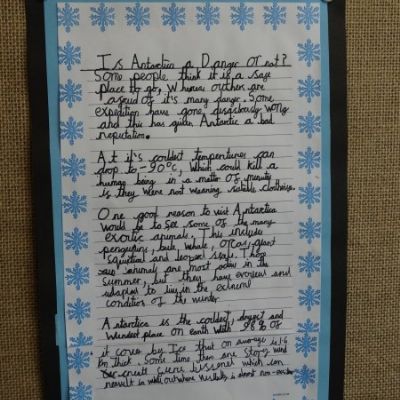 Is Antarctica a Danger or not?
Some people think it is a safe
place to go, Wheras others are
afraid of it's many danger. Some
expedition have gone disasterously wrong
and this has given Antarctic a bad
reputation.
At it's coldest temperatures can
drop to -90°C, which could kill a
human being in a matter of minutes
is they were not wearing suitable clothing.
One good reason to visit Antarctica
would be to see some of the many
exotic animals. This include
penguins, whale, orcas, giant
squid and leopard seals. These
animal are most active in the
summer, but they have evolved and
adapted to live in the extreme
condition of the winter.
Antartica is the coldest, dryest and
windest place on earth with 98% of
it cover by Ice that on average is 1.6
km thick. Some time there are Strong wind
which can
result in white out where visibility is almost non-